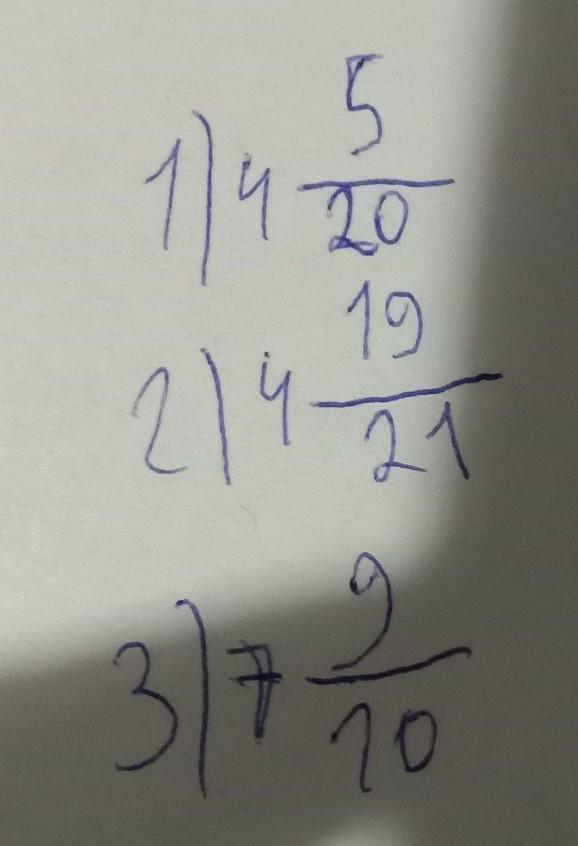 1) 4 5/20
2) 4 19/21
3) 7 9/10